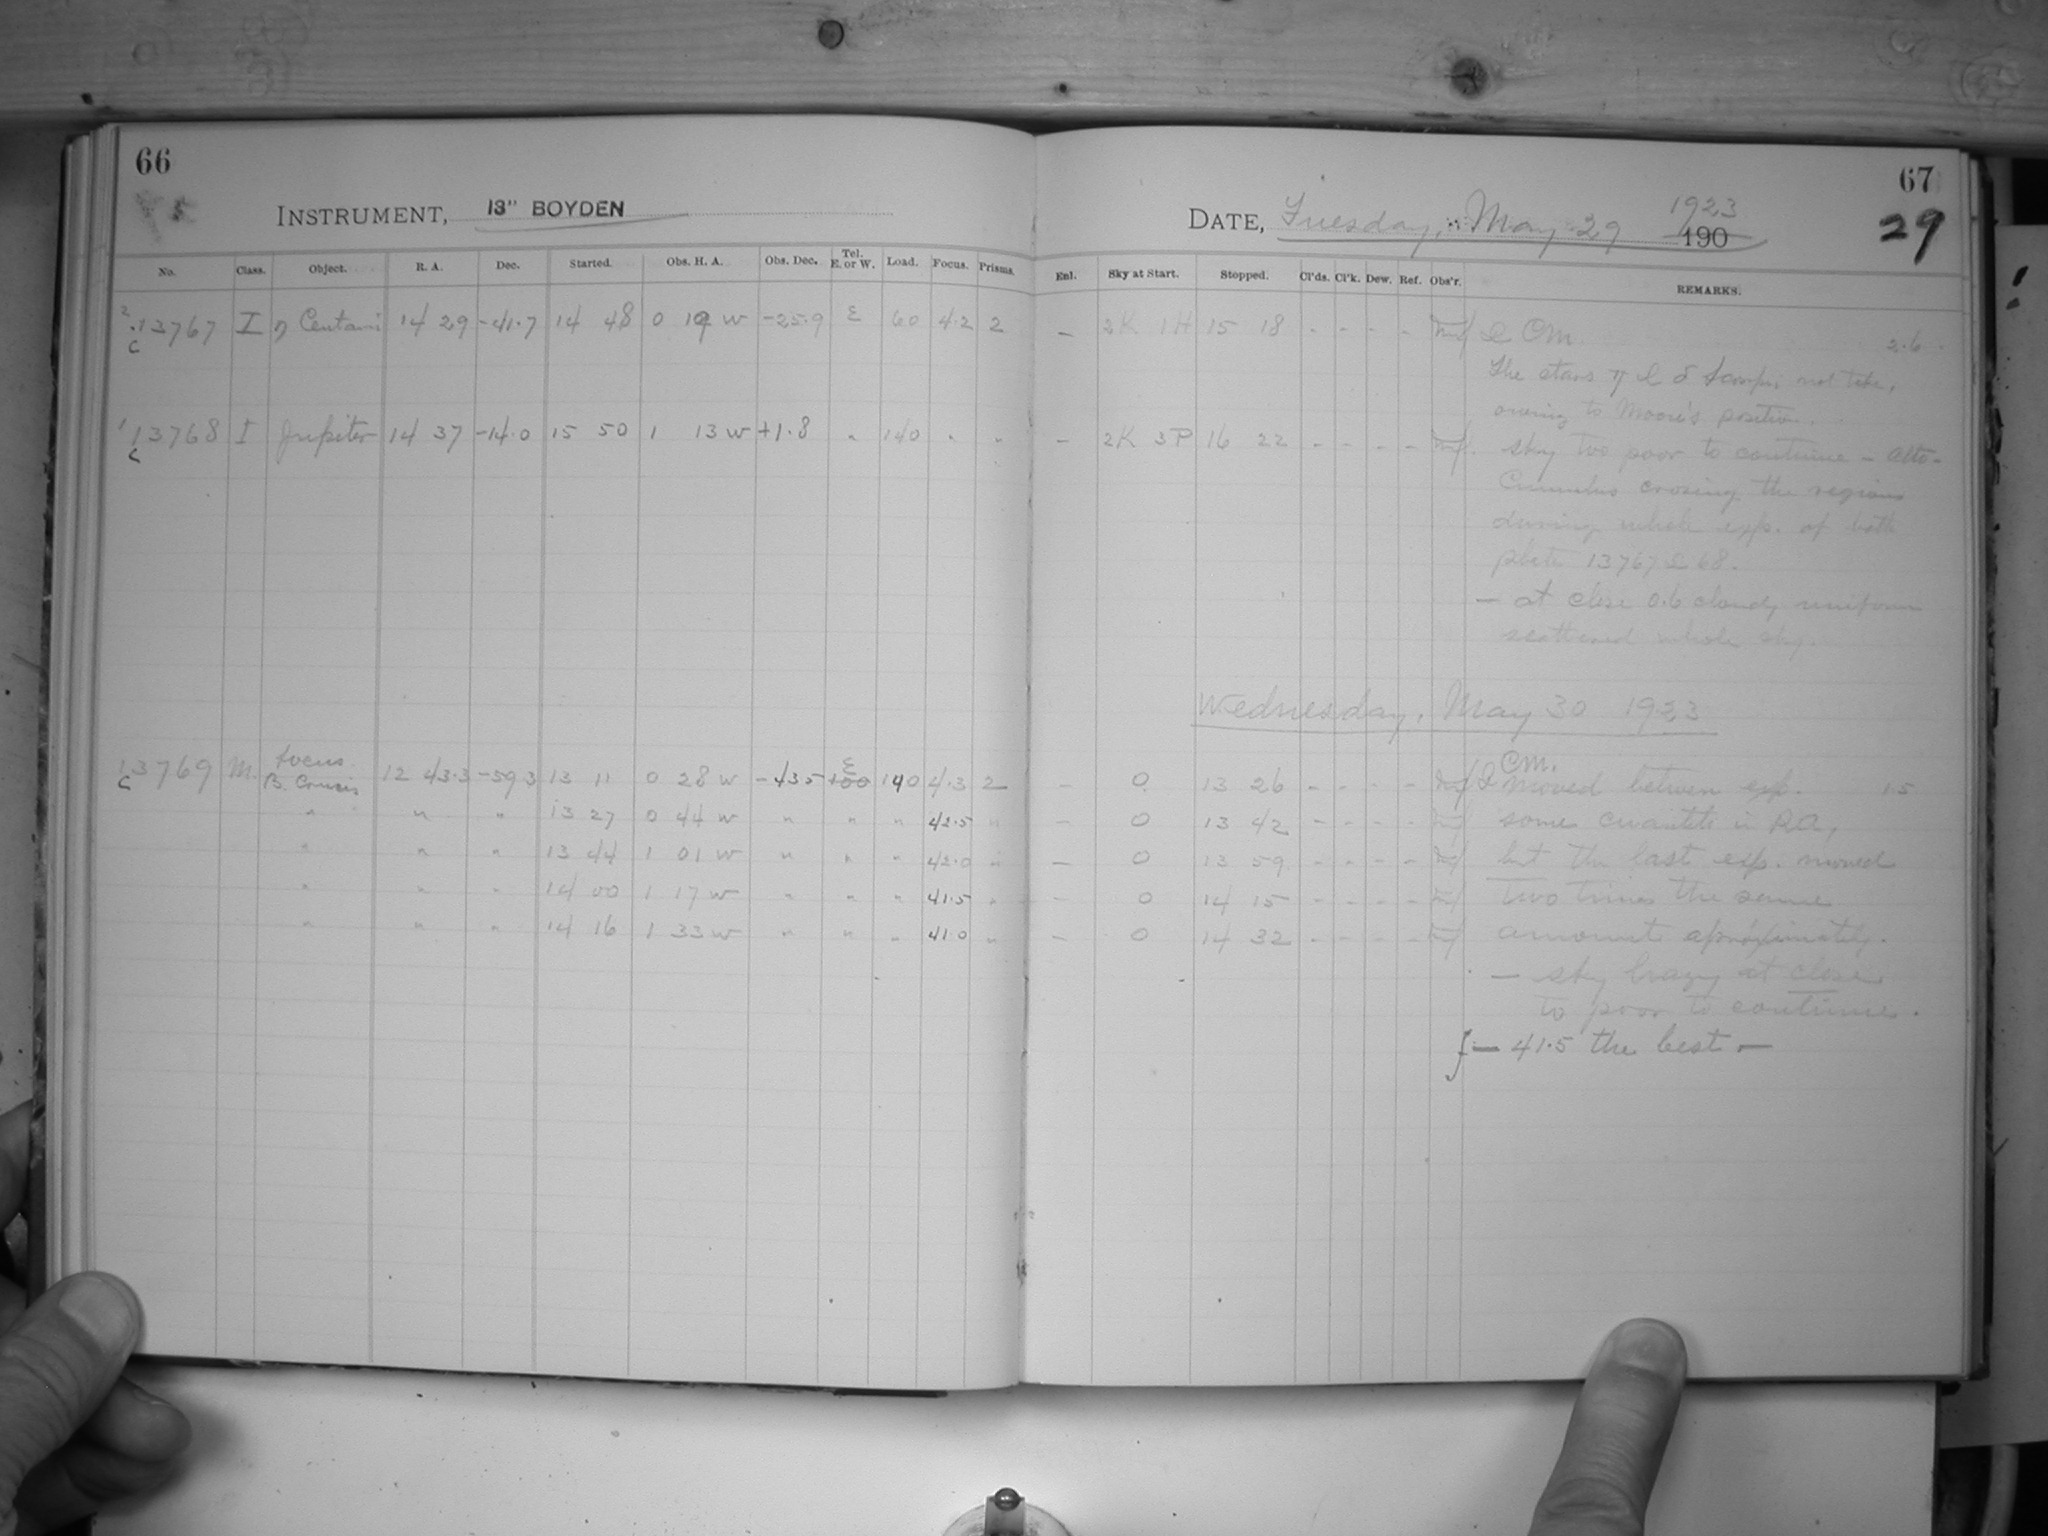 66
INSTRUMENT, 13" BOYDEN
No. Class. Object. R. A. Dec. Started. Obs. H. A. Obs. Dec. Tel. E. or W. Load. Focus. Prisms.
13767 I η Centauri 14 29 -41.7 14 48 0 19 W -25.9 E 60 4.2 2
13768 I Jupiter 14 37 -14.0 15 50 1 13 W +1.8 " 140 " "
13769 M. focus
B. Crucis 12 43.3 -59 3 13 11 0 28 W -43 5 E 140 4.3 2
" " " 13 27 0 44 W " " " 42.5 "
" " " 13 44 1 01 W " " " 42.0 "
" " " 14 00 1 17 W " " " 41.5 "
" " " 14 16 1 33 W " " " 41.0 "
67
DATE, Tuesday, May 29 1923
190
29
Enl. Sky at Start. Stopped. Cl'ds. Cl'k. Dew. Ref. Obs'r. REMARKS.
– 2K 1H 15 18 - - - - & Cm. 2.6
The stars η & δ not take,
owing to Moore's position.
– 2K 3P 16 22 - - - - sky too poor to continue – Alto-
Cumulus crossing the regions
during whole exp. of both
plate 13767 & 68.
— at close 0.6 cloudy uniform
scattered whole sky.
Wednesday, May 30 1923
Cm.
– 0 13 26 - - - - & moved between exp. 1.5
– 0 13 42 - - - - some in RA,
– 0 13 59 - - - - but the last exp. moved
– 0 14 15 - - - - two times the same
– 0 14 32 - - - - amount aproximately.
— sky hazy at close
to poor to continue.
f — 41.5 the best —